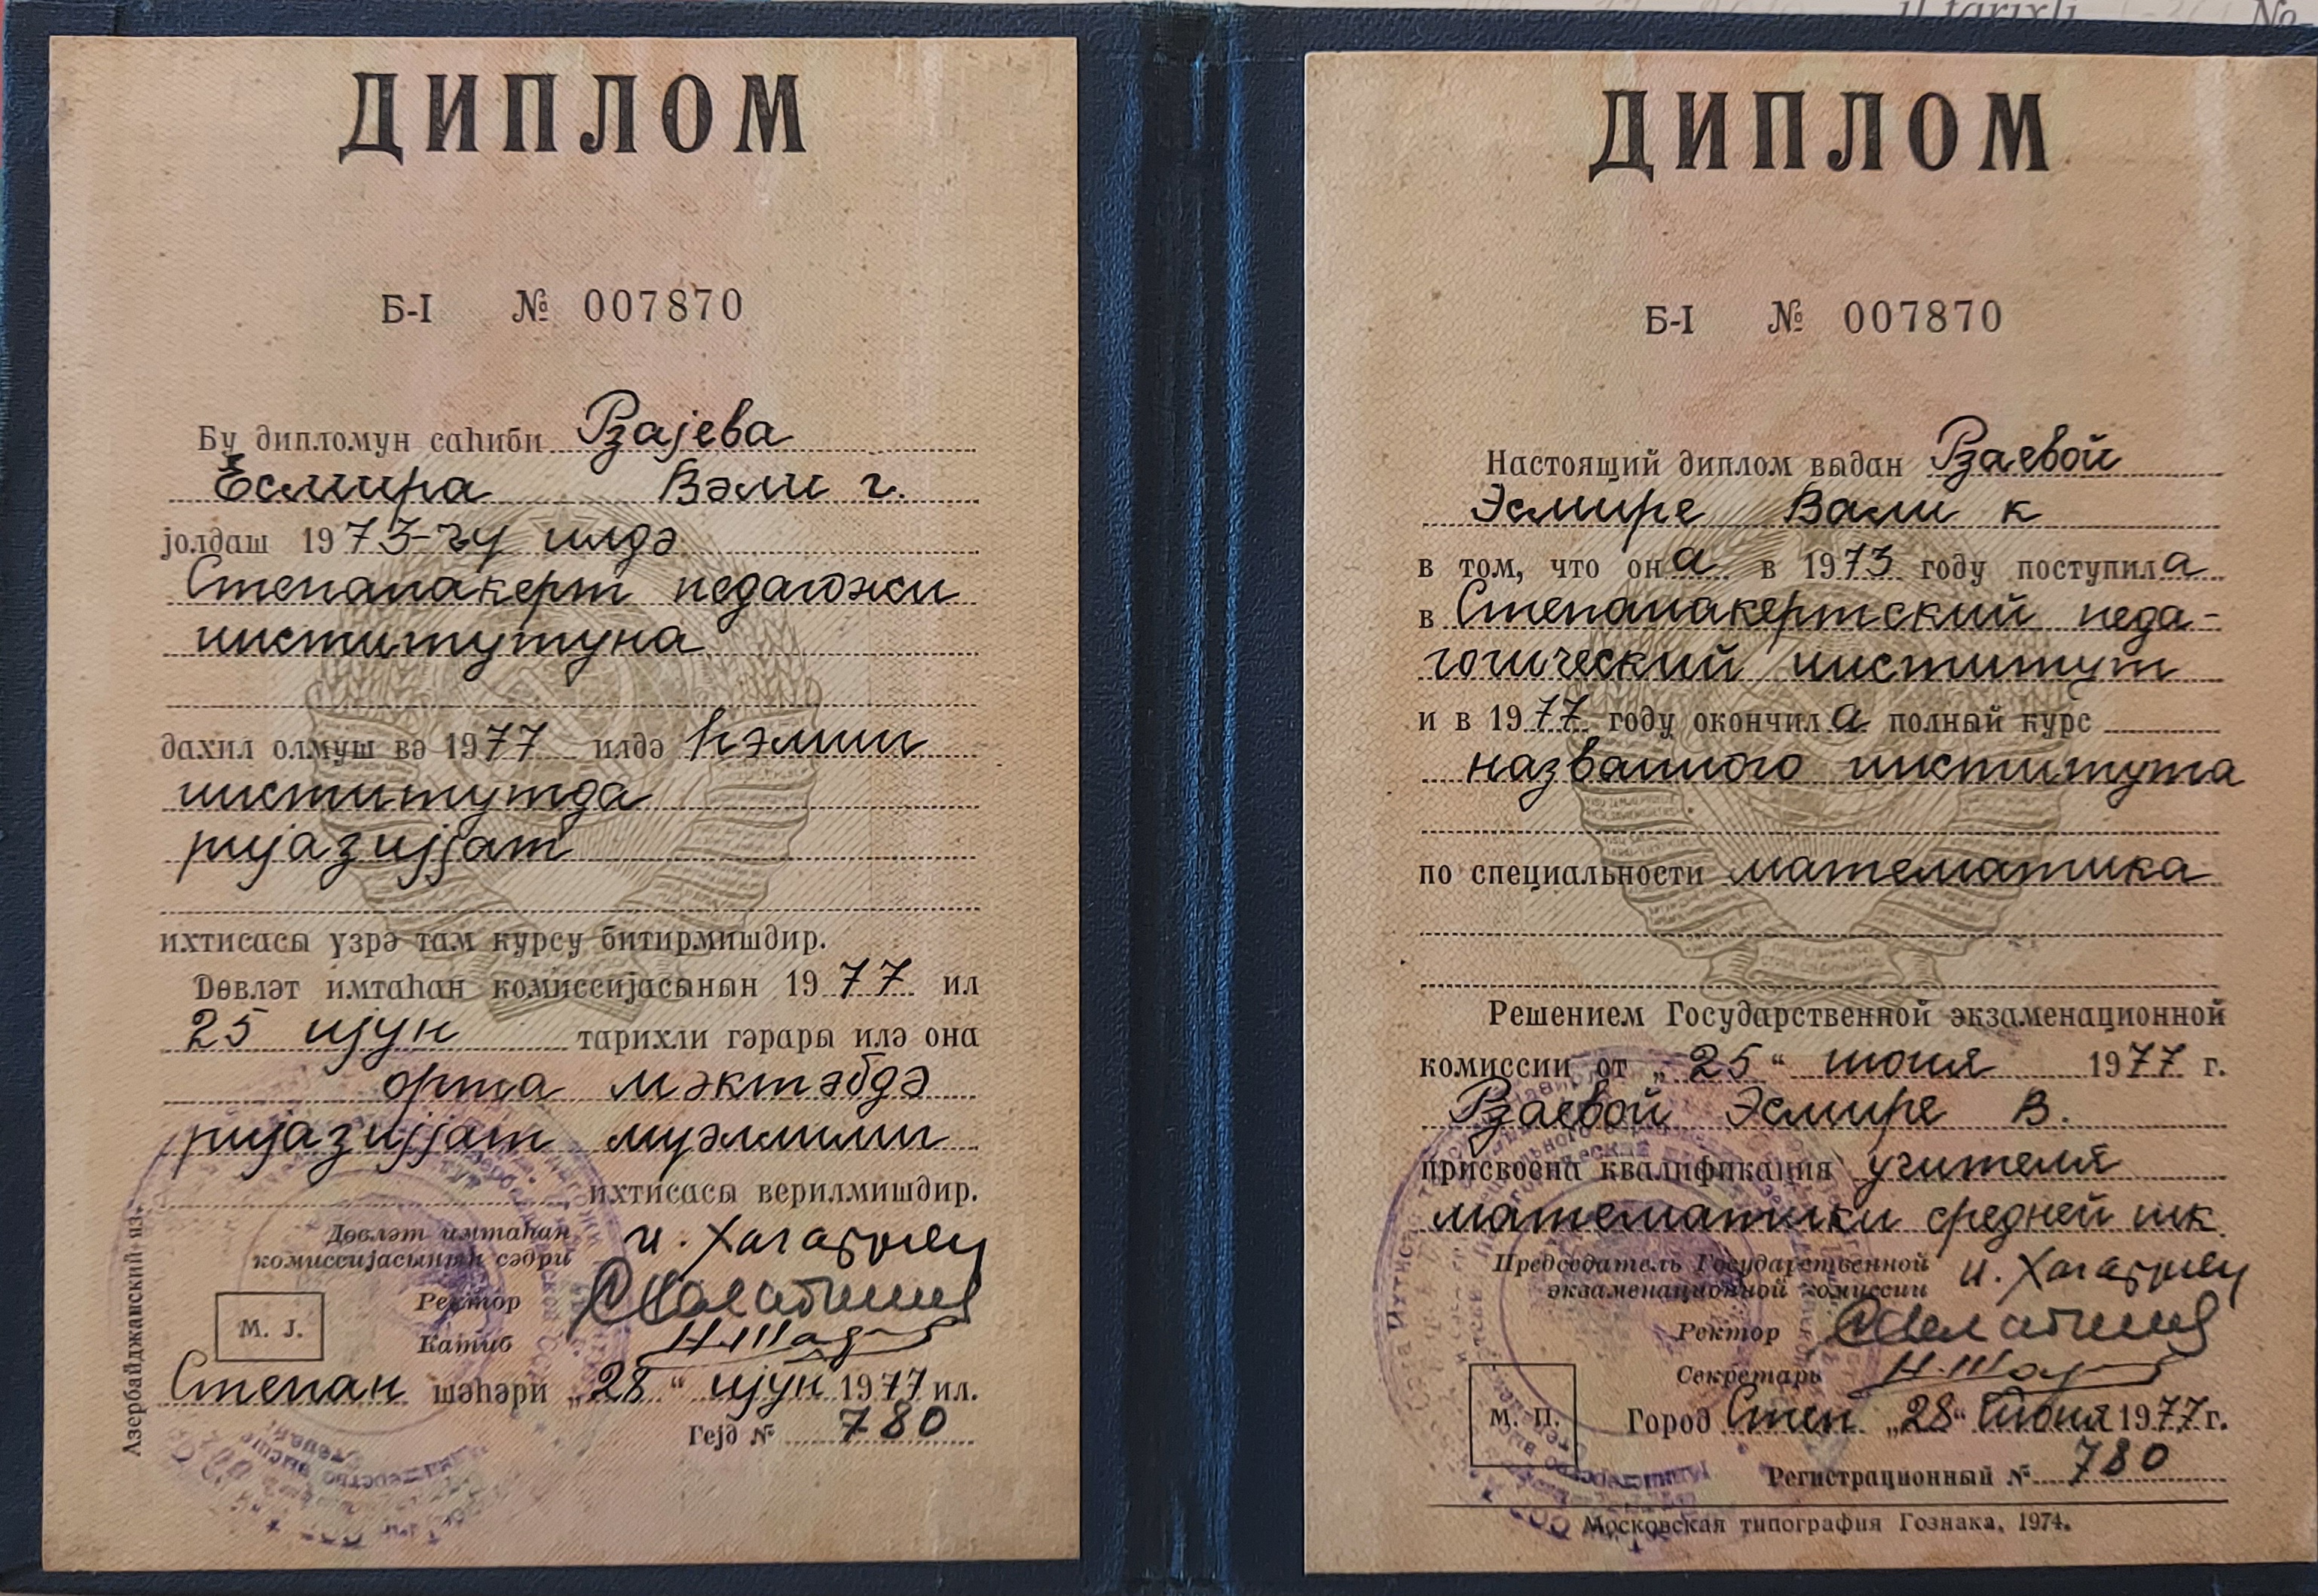 il tarixli
№
ДИПЛОМ
Б-I № 007870
Бу дипломун саһиби Рзајева
Есмира Вәли г.
јолдаш 1973-ҹу илдә
Степанакерт педагожи
институтуна
дахил олмуш вә 1977 илдә һәмин
институтда
ријазијјат
ихтисасы үзрә там курсу битирмишдир.
Dөвләт имтаһан комиссијасынын 1977 ил
25 ијун тарихли гәрары илә она
орта мәктәбдә
ријазијјат муәллими
ихтисасы верилмишдир.
Дөвләт имтаһан
комиссијасынын сәдри
Ректор
М. J.
Катиб
Степан шәһәри „28“ ијун 1977 ил.
Гејд № 780
Азербайджанский яз.
ДИПЛОМ
Б-I № 007870
Настоящий диплом выдан Рзаевой
Эсмире Вали к
в том, что она в 1973 году поступила
в Степанакертский педа-
гогический институт
и в 1977 году окончила полный курс
названного института
по специальности математика
Решением Государственной экзаменационной
комиссии от „25“ июня 1977 г.
Рзаевой Эсмире В.
присвоена квалификация учителя
математики средней шк.
Председатель Государственной
экзаменационной комиссии
Ректор
Секретарь
М. П.
Город Степ „28“ июня 1977 г.
Регистрационный № 780
Московская типография Гознака, 1974.